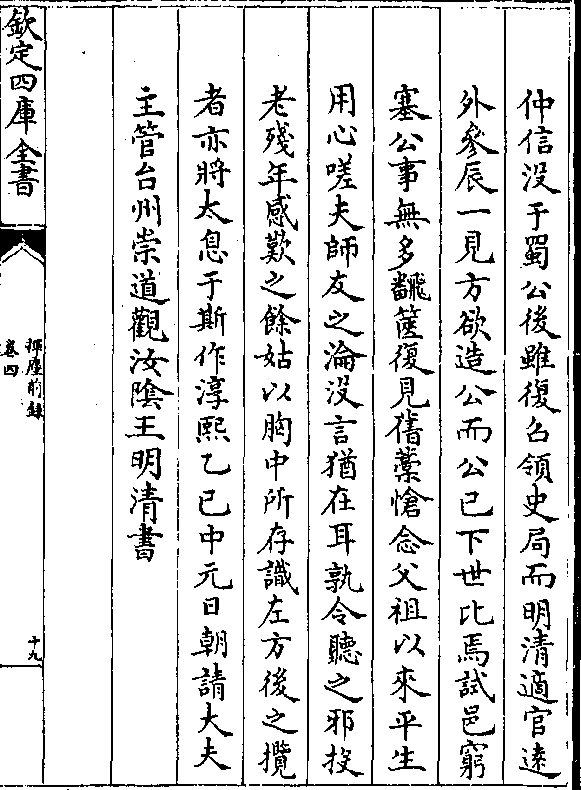 仲信没于蜀公後雖復召領史局而明清適官逺
外參辰一見方欲造公而公已下世比焉試邑窮
塞公事無多飜箧復見舊藁愴念父祖以來平生
用心嗟夫師友之淪没言猶在耳孰令聽之邪投
老殘年感歎之餘姑以胸中所存識左方後之攬
者亦將太息于斯作淳熙乙巳中元日朝請大夫
主管台州崇道觀汝隂王明清書
欽定四庫全書
揮麈前録
卷四
十九